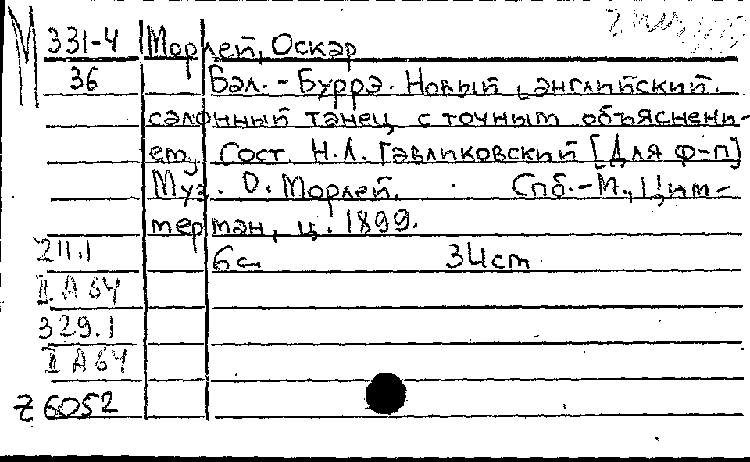 М 331-4 Морлей, Оскар
36 Бал. - Буррэ. Новый английский
салонный танец с точным объяснени-
ем, Сост. Н.Л. Гавликовский [Для ф-п]
Муз. О. Морлей. Спб.-М., Цим-
мерман, ц. 1899.
211.1 6 с. 34 cm
II A 64
329.1
II A 64
Z 6052